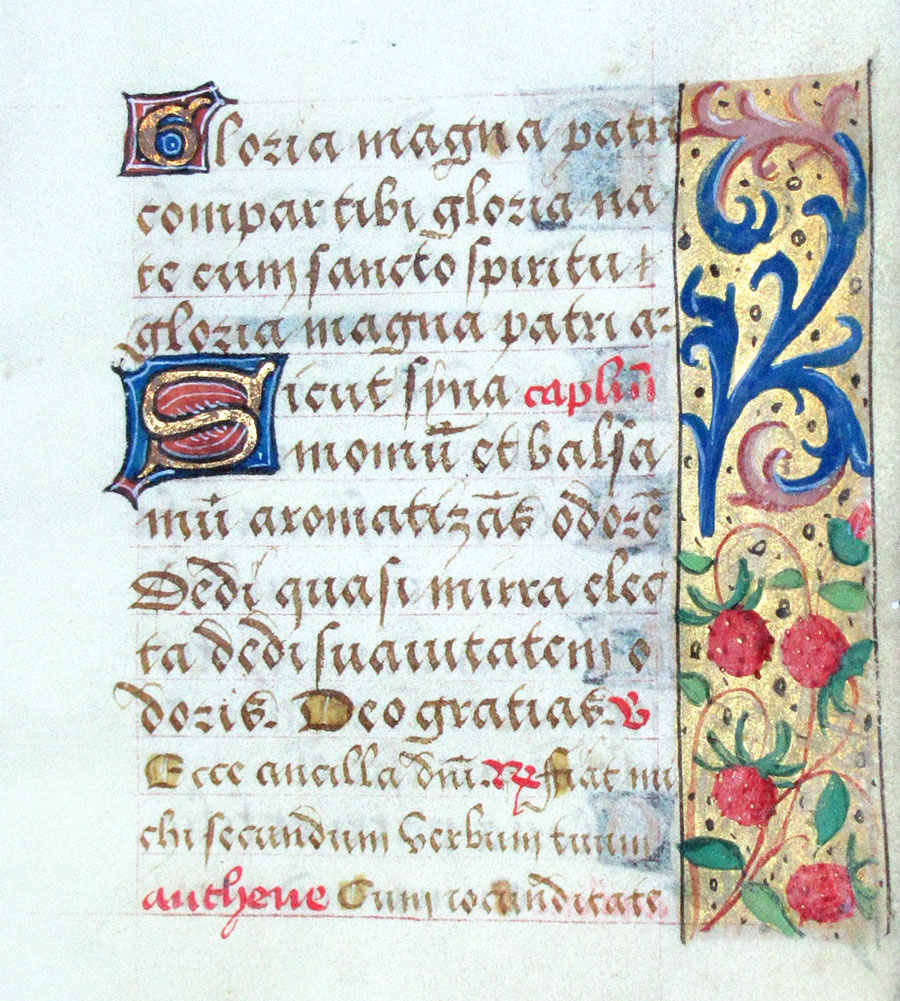 Gloria magna patri
compar tibi gloria na
te cum sancto spiritu
gloria magna patri a
Sicut syna caplm̄
momū et balsa
mū aromatizās odorē
Dedi quasi mirra elec
ta dedi suauitatem o
doris. Deo gratias. v
Ecce ancilla dn̄i. Rx fiat mi
chi secundum verbum tuum
anthene Cum iocunditate